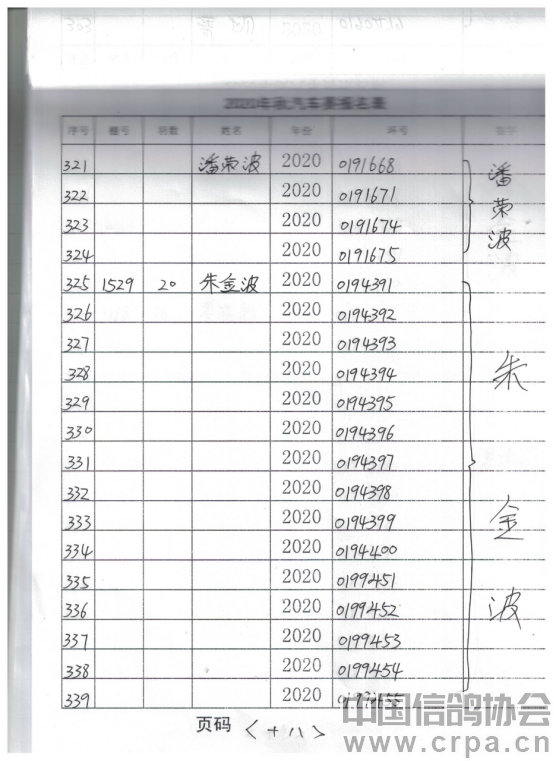 303 2020
2020年秋汽车赛报名表
序号 棚号 羽数 姓名 年份 环号 签字
321 潘荣波 2020 0191668 潘荣波
322 2020 0191671
323 2020 0191674
324 2020 0191675
325 1529 20 朱金波 2020 0194391 朱金波
326 2020 0194392
327 2020 0194393
328 2020 0194394
329 2020 0194395
330 2020 0194396
331 2020 0194397
332 2020 0194398
333 2020 0194399
334 2020 0194400
335 2020 0199451
336 2020 0199452
337 2020 0199453
338 2020 0199454
339 2020 0199455
页码 <十八>
中国信鸽协会
www.crpa.cn